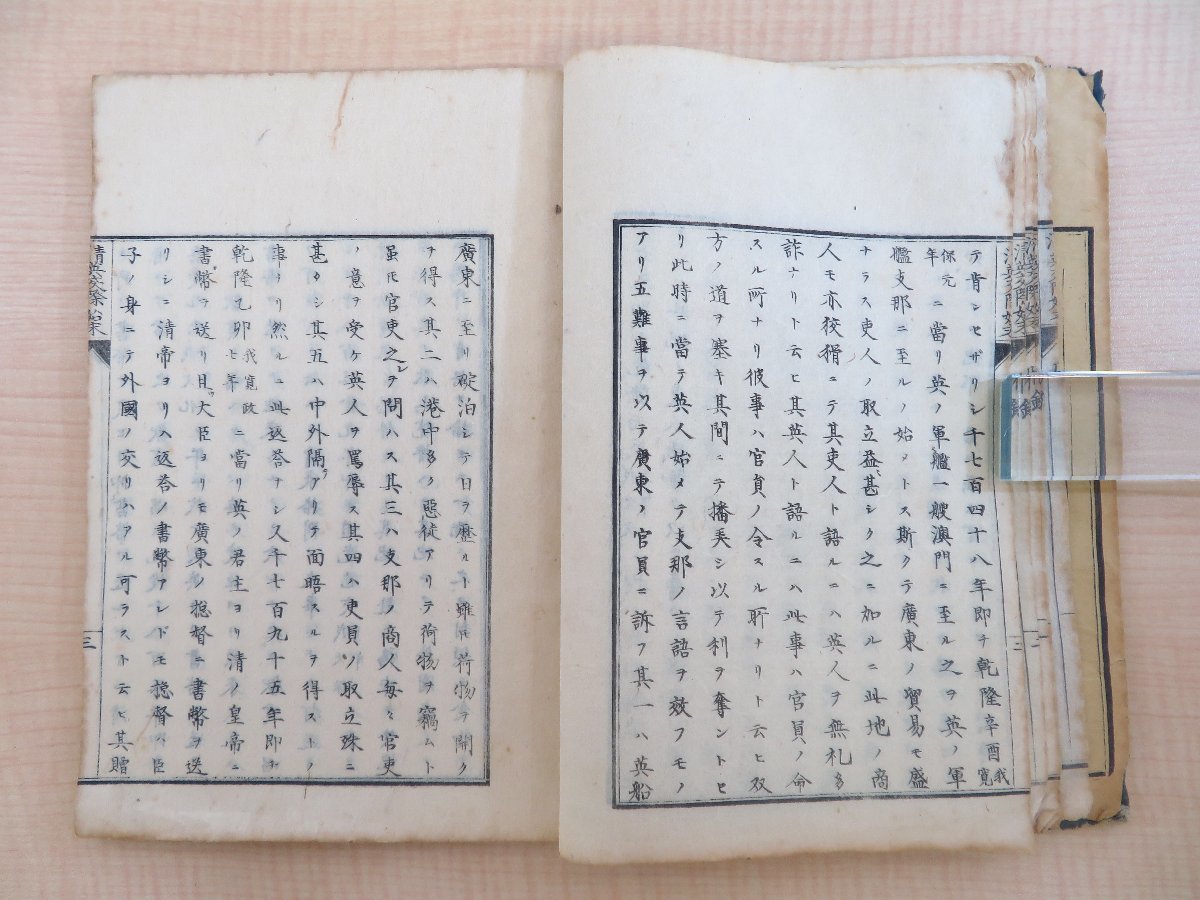 テ肯ンセザリシ千七百四十八年即チ乾隆辛酉我寛
保元年ニ當リ英ノ軍艦一艘澳門ニ至ル之ヲ英ノ軍
艦支那ニ至ルノ始メトス斯クテ廣東ノ貿易モ盛
ナラス吏人ノ取立益甚シク之ニ加ルニ此地ノ商
人モ亦狡猾ニテ其吏人ト語ルニハ英人ヲ無礼多
詐ナリト云ヒ其英人ト語ルニハ此事ハ官員ノ命
スル所ナリ彼事ハ官員ノ令スル所ナリト云ヒ双
方ノ道ヲ塞キ其間ニテ播弄シ以テ利ヲ奪ントセ
リ此時ニ當テ英人始メテ支那ノ言語ヲ效フモノ
アリ五難事ヲ以テ廣東ノ官員ニ訴フ其一ハ英船
廣東ニ至リ碇泊シテ日ヲ歴ルト雖モ荷物ヲ開ク
ヲ得ス其二ハ港中多ク惡徒アリテ荷物ヲ竊ムト
虽モ官吏之ヲ問ハス其三ハ支那ノ商人每々官吏
ノ意ヲ受ケ英人ヲ罵辱ス其四ハ吏員ノ取立殊ニ
甚タシ其五ハ中外隔リアリテ面晤スルヲ得ストノ
事ナリ然ルニ此返荅ナシ又千七百九十五年即チ
乾隆乙卯我寛政七年ニ當リ英ノ君主ヨリ清ノ皇帝ニ
書幣ヲ送リ且大臣ヨリモ廣東ノ揔督ニ書幣ヲ送
リシニ清帝ヨリハ返荅ノ書幣アレドモ揔督ハ臣
子ノ身ニテ外國ノ交リハアル可ラスト云ヒ其贈
清英交際始末
三